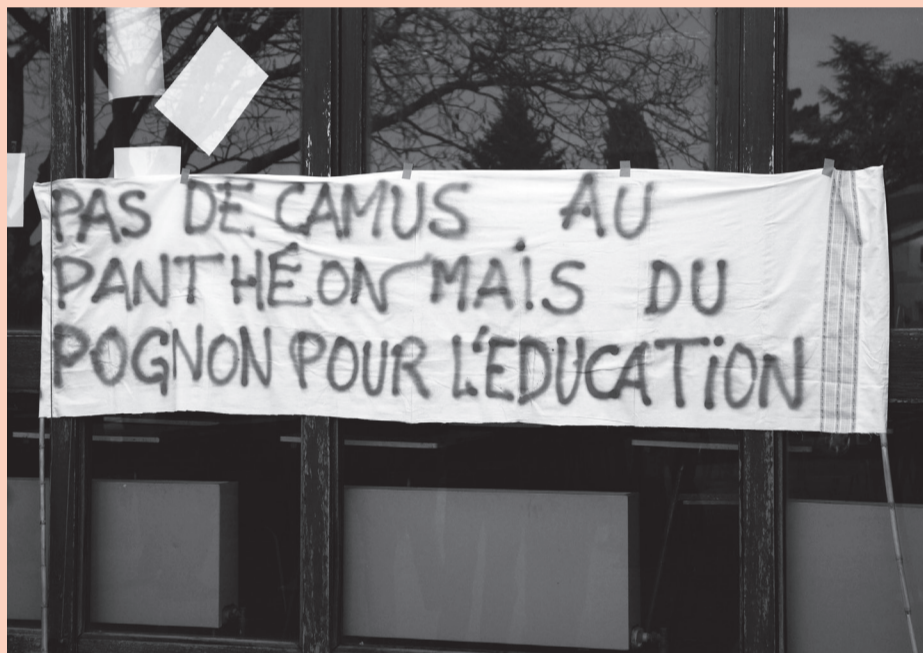 PAS DE CAMUS AU
PANTHÉON MAIS DU
POGNON POUR L'EDUCATION